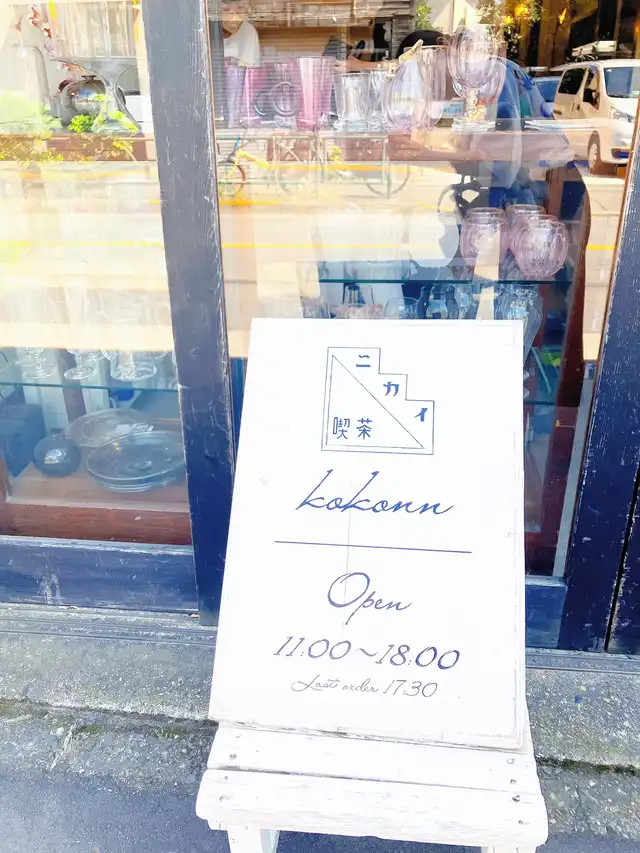 ニカイ
喫茶
kokonn
Open
11:00~18:00
Last order 17:30